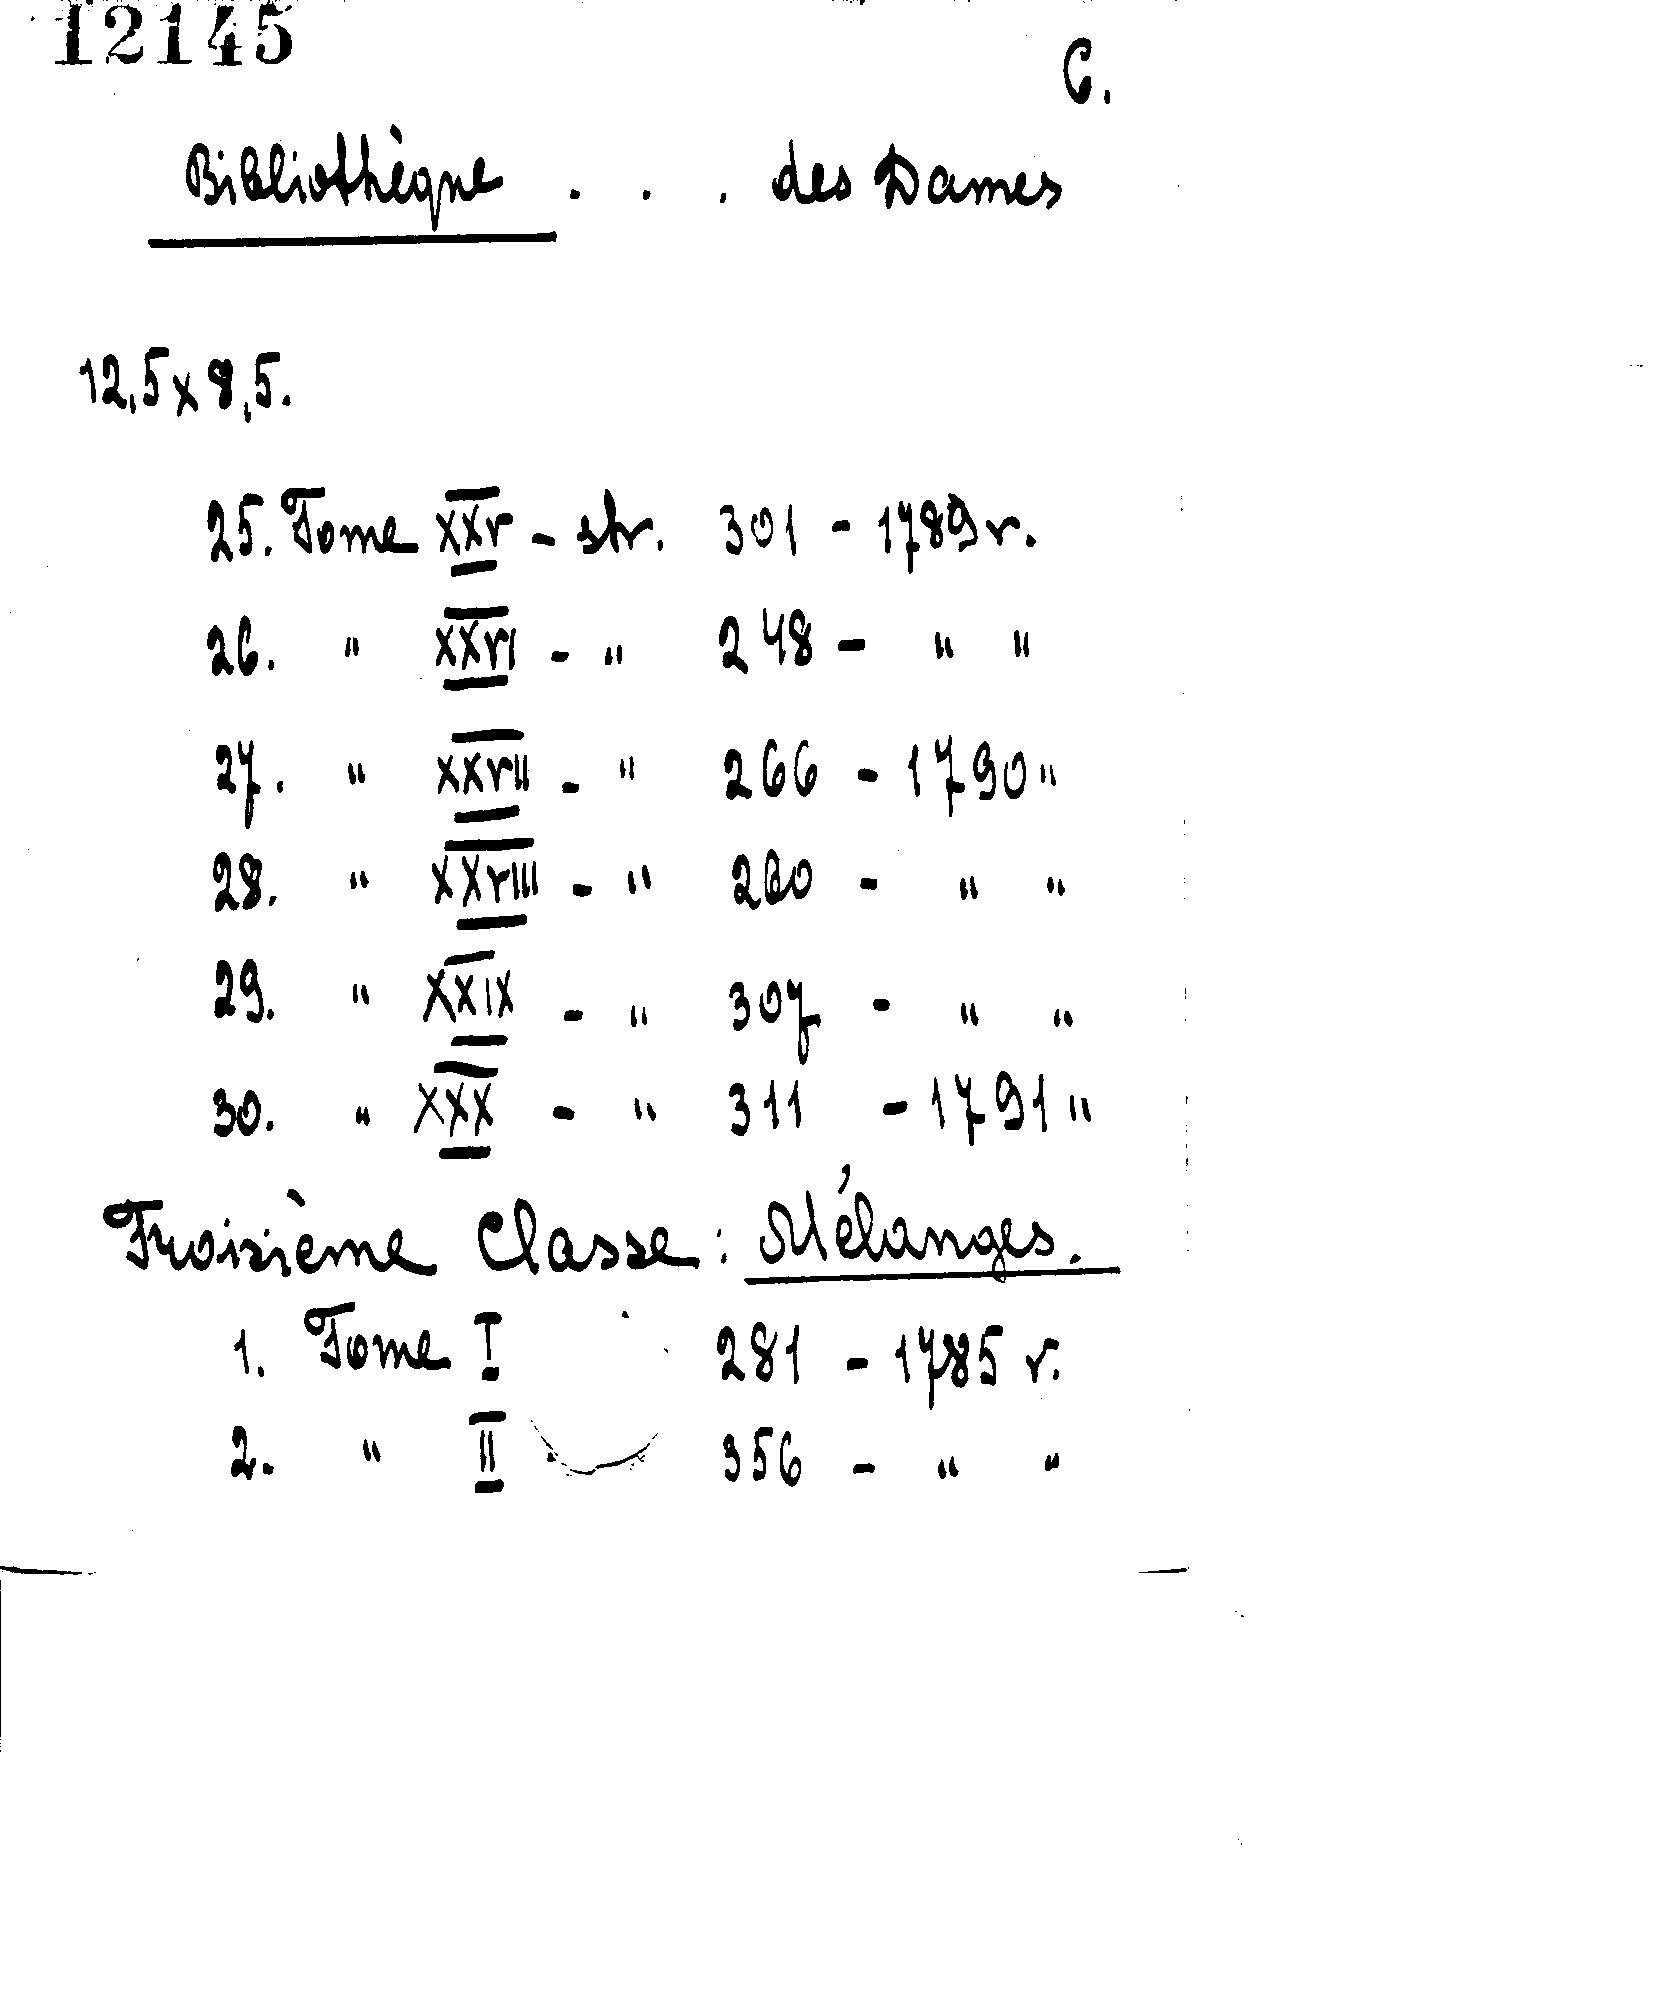 12145
C.
Bibliothèque . . . des Dames
12,5 x 8,5.
25. Tome XXV - str. 301 - 1789 r.
26. " XXVI - " 248 - " "
27. " XXVII - " 266 - 1790 "
28. " XXVIII - " 260 - " "
29. " XXIX - " 307 - " "
30. " XXX - " 311 - 1791 "
Troisième Classe : Mélanges.
1. Tome I 281 - 1785 r.
2. " II 356 - " "